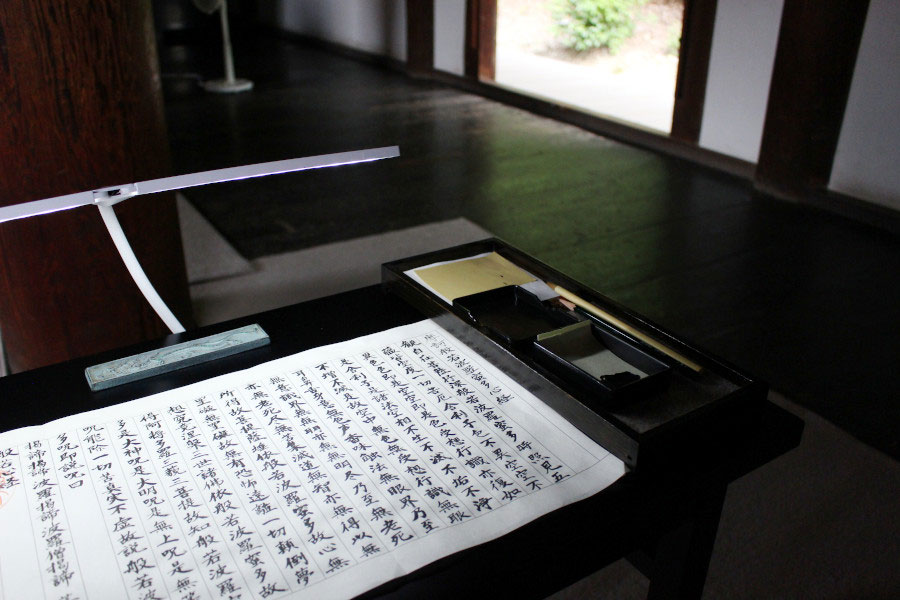 摩訶般若波羅蜜多心経
観自在菩薩行深般若波羅蜜多時照見五
蘊皆空度一切苦厄舎利子色不異空空不
異色色即是空空即是色受想行識亦復如
是舎利子是諸法空相不生不滅不垢不浄
不増不減是故空中無色無受想行識無眼
耳鼻舌身意無色声香味触法無眼界乃至
無意識界無無明亦無無明尽乃至無老死
亦無老死尽無苦集滅道無智亦無得以無
所得故菩提薩埵依般若波羅蜜多故心無
罣礙無罣礙故無有恐怖遠離一切顛倒夢
想究竟涅槃三世諸佛依般若波羅蜜多故
得阿耨多羅三藐三菩提故知般若波羅
多是大神呪是大明呪是無上呪是無
呪能除一切苦真実不虚故説般若波
多呪即説呪曰
掲諦掲諦波羅掲諦波羅僧掲諦
般若心経